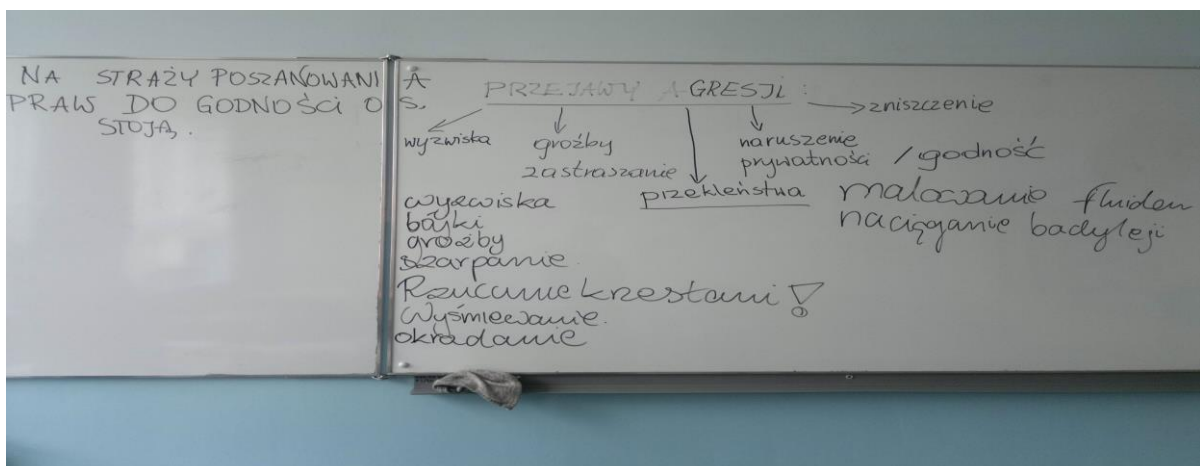 NA STRAŻY POSZANOWANIA
PRAW DO GODNOŚCI OS.
STOJĄ.
PRZEJAWY AGRESJI:
wyzwiska
groźby
zastraszanie
przekleństwa
naruszenie
prywatności / godność
zniszczenie
wyzwiska
bójki
groźby
szarpanie
Rzucanie krzesłami!
Wyśmiewanie.
okradanie
malowanie fluidem
naciąganie